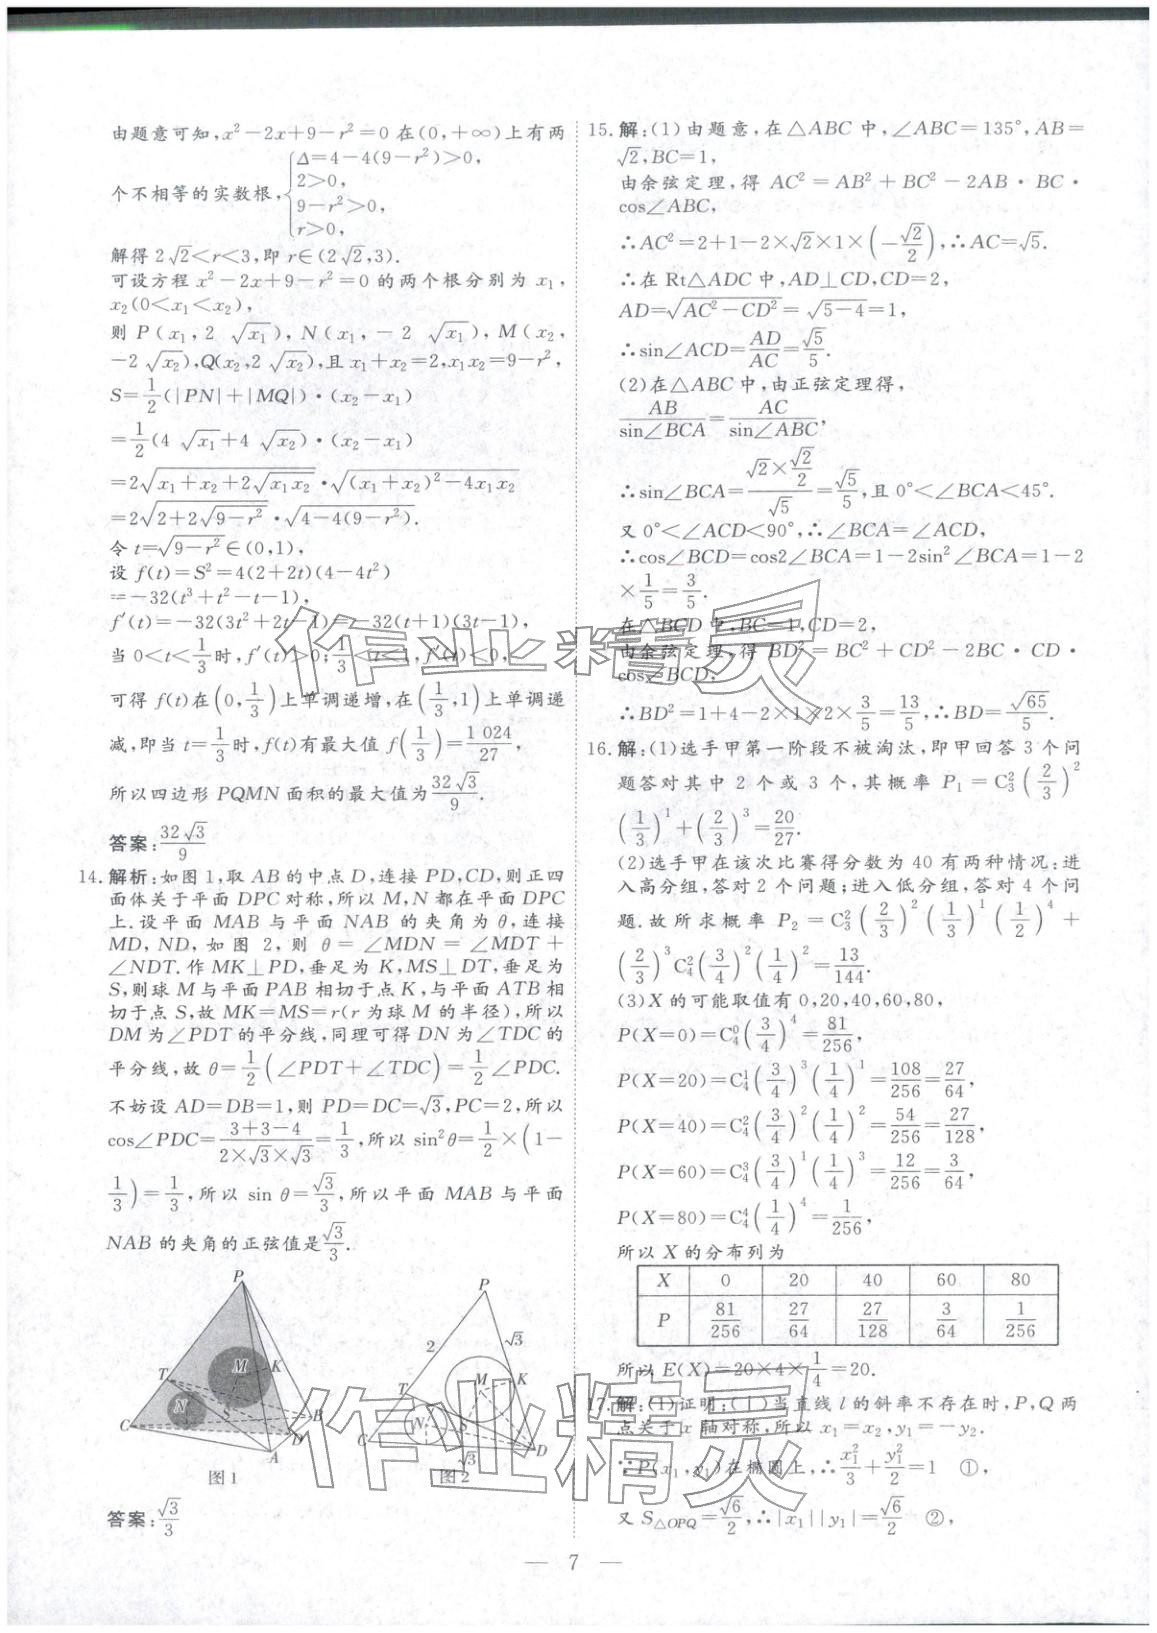 由题意可知,x²-2x+9-r²=0在(0,+∞)上有两
个不相等的实数根,{Δ=4-4(9-r²)>0,
2>0,
9-r²>0,
r>0,
解得2√2<r<3,即r∈(2√2,3).
可设方程x²-2x+9-r²=0的两个根分别为x₁,
x₂(0<x₁<x₂),
则P(x₁,2√x₁),N(x₁,-2√x₁),M(x₂,
-2√x₂),Q(x₂,2√x₂),且x₁+x₂=2,x₁x₂=9-r²,
S=1/2(|PN|+|MQ|)·(x₂-x₁)
=1/2(4√x₁+4√x₂)·(x₂-x₁)
=2√(x₁+x₂+2√(x₁x₂))·√((x₁+x₂)²-4x₁x₂)
=2√(2+2√(9-r²))·√(4-4(9-r²)).
令t=√(9-r²)∈(0,1),
设f(t)=S²=4(2+2t)(4-4t²)
=-32(t³+t²-t-1),
f′(t)=-32(3t²+2t-1)=-32(t+1)(3t-1),
当0<t<1/3时,f′(t)>0;1/3<t<1,f′(t)<0,
可得f(t)在(0,1/3)上单调递增,在(1/3,1)上单调递
减,即当t=1/3时,f(t)有最大值f(1/3)=1 024/27,
所以四边形PQMN面积的最大值为32√3/9.
答案:32√3/9
14.解析:如图1,取AB的中点D,连接PD,CD,则正四
面体关于平面DPC对称,所以M,N都在平面DPC
上.设平面MAB与平面NAB的夹角为θ,连接
MD,ND,如图2,则θ=∠MDN=∠MDT+
∠NDT.作MK⊥PD,垂足为K,MS⊥DT,垂足为
S,则球M与平面PAB相切于点K,与平面ATB相
切于点S,故MK=MS=r(r为球M的半径),所以
DM为∠PDT的平分线,同理可得DN为∠TDC的
平分线,故θ=1/2(∠PDT+∠TDC)=1/2∠PDC.
不妨设AD=DB=1,则PD=DC=√3,PC=2,所以
cos∠PDC=(3+3-4)/(2×√3×√3)=1/3,所以sin²θ=1/2×(1-
1/3)=1/3,所以sin θ=√3/3,所以平面MAB与平面
NAB的夹角的正弦值是√3/3.
P
T
M
K
N
S
C
B
D
A
图1
P
2
√3
T
M
K
N
C
√3
D
图2
答案:√3/3
15.解:(1)由题意,在△ABC中,∠ABC=135°,AB=
√2,BC=1,
由余弦定理,得AC²=AB²+BC²-2AB·BC·
cos∠ABC,
∴AC²=2+1-2×√2×1×(-√2/2),∴AC=√5.
∴在Rt△ADC中,AD⊥CD,CD=2,
AD=√(AC²-CD²)=√(5-4)=1,
∴sin∠ACD=AD/AC=√5/5.
(2)在△ABC中,由正弦定理得,
AB/sin∠BCA=AC/sin∠ABC,
∴sin∠BCA=(√2×√2/2)/√5=√5/5,且0°<∠BCA<45°.
又0°<∠ACD<90°,∴∠BCA=∠ACD,
∴cos∠BCD=cos2∠BCA=1-2sin²∠BCA=1-2
×1/5=3/5.
在△BCD中,BC=1,CD=2,
由余弦定理,得BD²=BC²+CD²-2BC·CD·
cos∠BCD,
∴BD²=1+4-2×1×2×3/5=13/5,∴BD=√65/5.
16.解:(1)选手甲第一阶段不被淘汰,即甲回答3个问
题答对其中2个或3个,其概率P₁=C₃²(2/3)²
(1/3)¹+(2/3)³=20/27.
(2)选手甲在该次比赛得分数为40有两种情况:进
入高分组,答对2个问题;进入低分组,答对4个问
题.故所求概率P₂=C₃²(2/3)²(1/3)¹(1/2)⁴+
(2/3)³C₄²(3/4)²(1/4)²=13/144.
(3)X的可能取值有0,20,40,60,80,
P(X=0)=C₄⁰(3/4)⁴=81/256,
P(X=20)=C₄¹(3/4)³(1/4)¹=108/256=27/64,
P(X=40)=C₄²(3/4)²(1/4)²=54/256=27/128,
P(X=60)=C₄³(3/4)¹(1/4)³=12/256=3/64,
P(X=80)=C₄⁴(1/4)⁴=1/256,
所以X的分布列为
X 0 20 40 60 80
P 81/256 27/64 27/128 3/64 1/256
所以E(X)=20×4×1/4=20.
17.解:(1)证明:(ⅰ)当直线l的斜率不存在时,P,Q两
点关于x轴对称,所以x₁=x₂,y₁=-y₂.
∵P(x₁,y₁)在椭圆上,∴x₁²/3+y₁²/2=1 ①,
又S△OPQ=√6/2,∴|x₁||y₁|=√6/2 ②,
— 7 —
作业上精灵
作业精灵